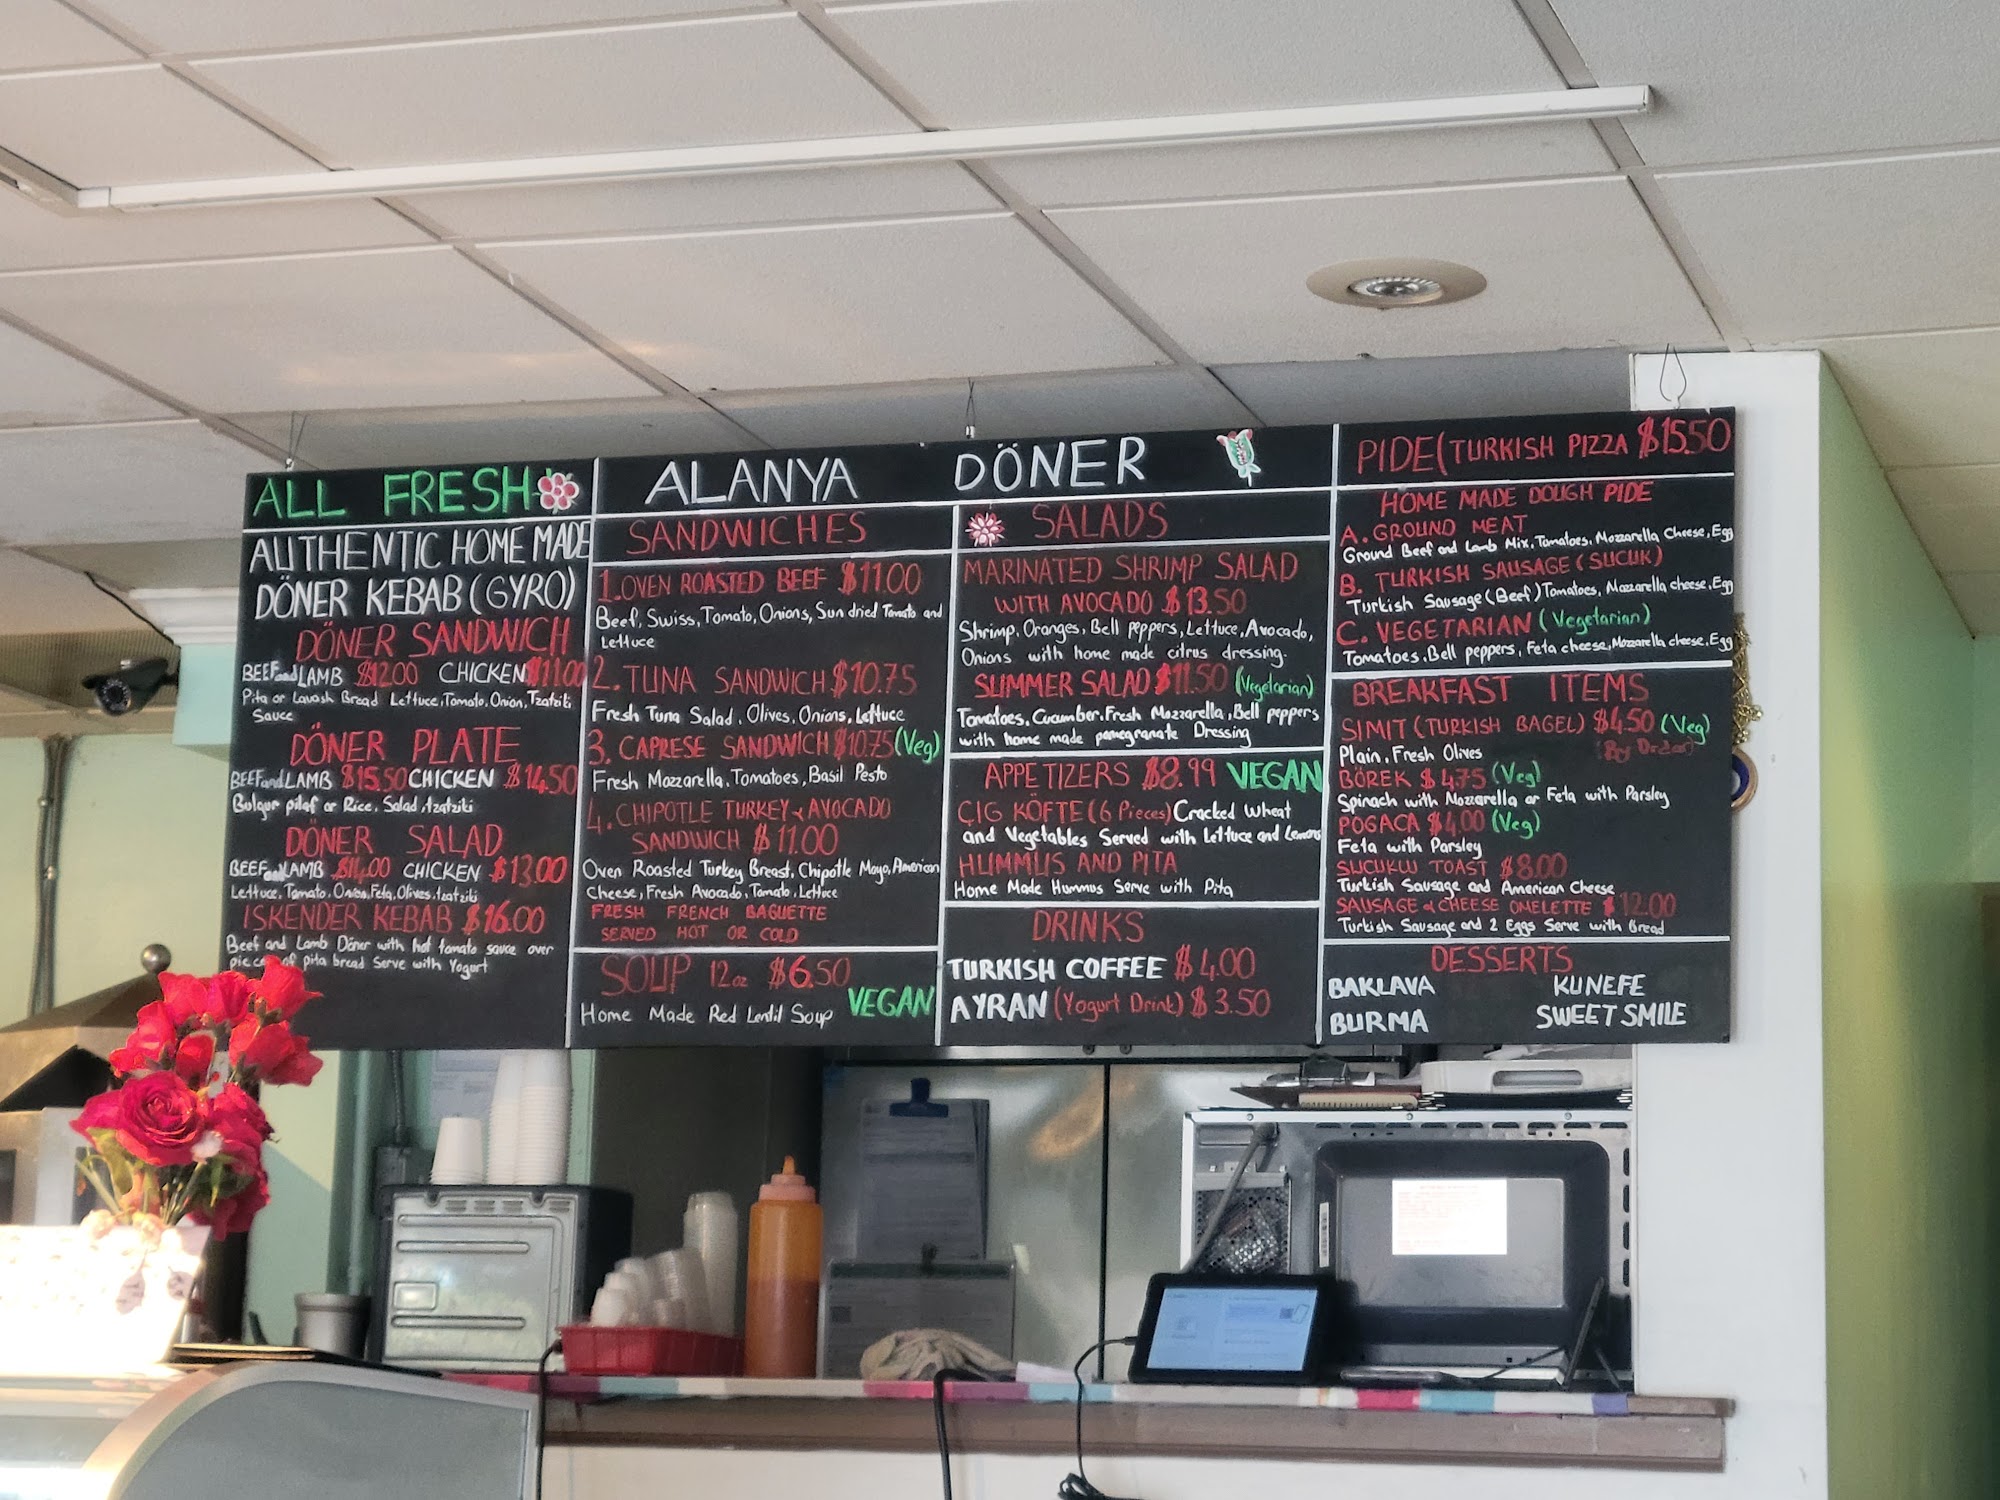 ALL FRESH
AUTHENTIC HOME MADE
DÖNER KEBAB (GYRO)
DÖNER SANDWICH
BEEF and LAMB $12.00 CHICKEN $11.00
Pita or Lavash Bread Lettuce, Tomato, Onion, Tzatziki
Sauce
DÖNER PLATE
BEEF and LAMB $15.50 CHICKEN $14.50
Bulgur pilaf or Rice, Salad, tzatziki
DÖNER SALAD
BEEF and LAMB $14.00 CHICKEN $13.00
Lettuce, Tomato, Onion, Feta, Olives, tzatziki
ISKENDER KEBAB $16.00
Beef and Lamb Döner with hot tomato sauce over
pieces of pita bread Serve with Yogurt
ALANYA DÖNER
SANDWICHES
1. OVEN ROASTED BEEF $11.00
Beef, Swiss, Tomato, Onions, Sun dried Tomato and
Lettuce
2. TUNA SANDWICH $10.75
Fresh Tuna Salad, Olives, Onions, Lettuce
3. CAPRESE SANDWICH $10.75 (Veg)
Fresh Mozzarella, Tomatoes, Basil Pesto
4. CHIPOTLE TURKEY & AVOCADO
SANDWICH $11.00
Oven Roasted Turkey Breast, Chipotle Mayo, American
Cheese, Fresh Avocado, Tomato, Lettuce
FRESH FRENCH BAGUETTE
SERVED HOT OR COLD
SOUP 12oz $6.50
Home Made Red Lentil Soup VEGAN
SALADS
MARINATED SHRIMP SALAD
WITH AVOCADO $13.50
Shrimp, Oranges, Bell peppers, Lettuce, Avocado,
Onions with home made citrus dressing.
SUMMER SALAD $11.50 (Vegetarian)
Tomatoes, Cucumber, Fresh Mozzarella, Bell peppers
with home made pomegranate Dressing
APPETIZERS $8.99 VEGAN
ÇIG KÖFTE (6 Pieces) Cracked Wheat
and Vegetables Served with Lettuce and Lemons
HUMMUS AND PITA
Home Made Hummus Serve with Pita
DRINKS
TURKISH COFFEE $4.00
AYRAN (Yogurt Drink) $3.50
PIDE (TURKISH PIZZA $15.50
HOME MADE DOUGH PIDE
A. GROUND MEAT
Ground Beef and Lamb Mix, Tomatoes, Mozzarella Cheese, Egg
B. TURKISH SAUSAGE (SUCUK)
Turkish Sausage (Beef) Tomatoes, Mozzarella cheese, Egg
C. VEGETARIAN (Vegetarian)
Tomatoes, Bell peppers, Feta cheese, Mozzarella cheese, Egg
BREAKFAST ITEMS
SIMIT (TURKISH BAGEL) $4.50 (Veg)
Plain, Fresh Olives
BÖREK $4.75 (Veg)
Spinach with Mozzarella or Feta with Parsley
POGACA $4.00 (Veg)
Feta with Parsley
SUCUKLU TOAST $8.00
Turkish Sausage and American Cheese
SAUSAGE & CHEESE OMELETTE $12.00
Turkish Sausage and 2 Eggs Serve with Bread
DESSERTS
BAKLAVA KUNEFE
BURMA SWEET SMILE